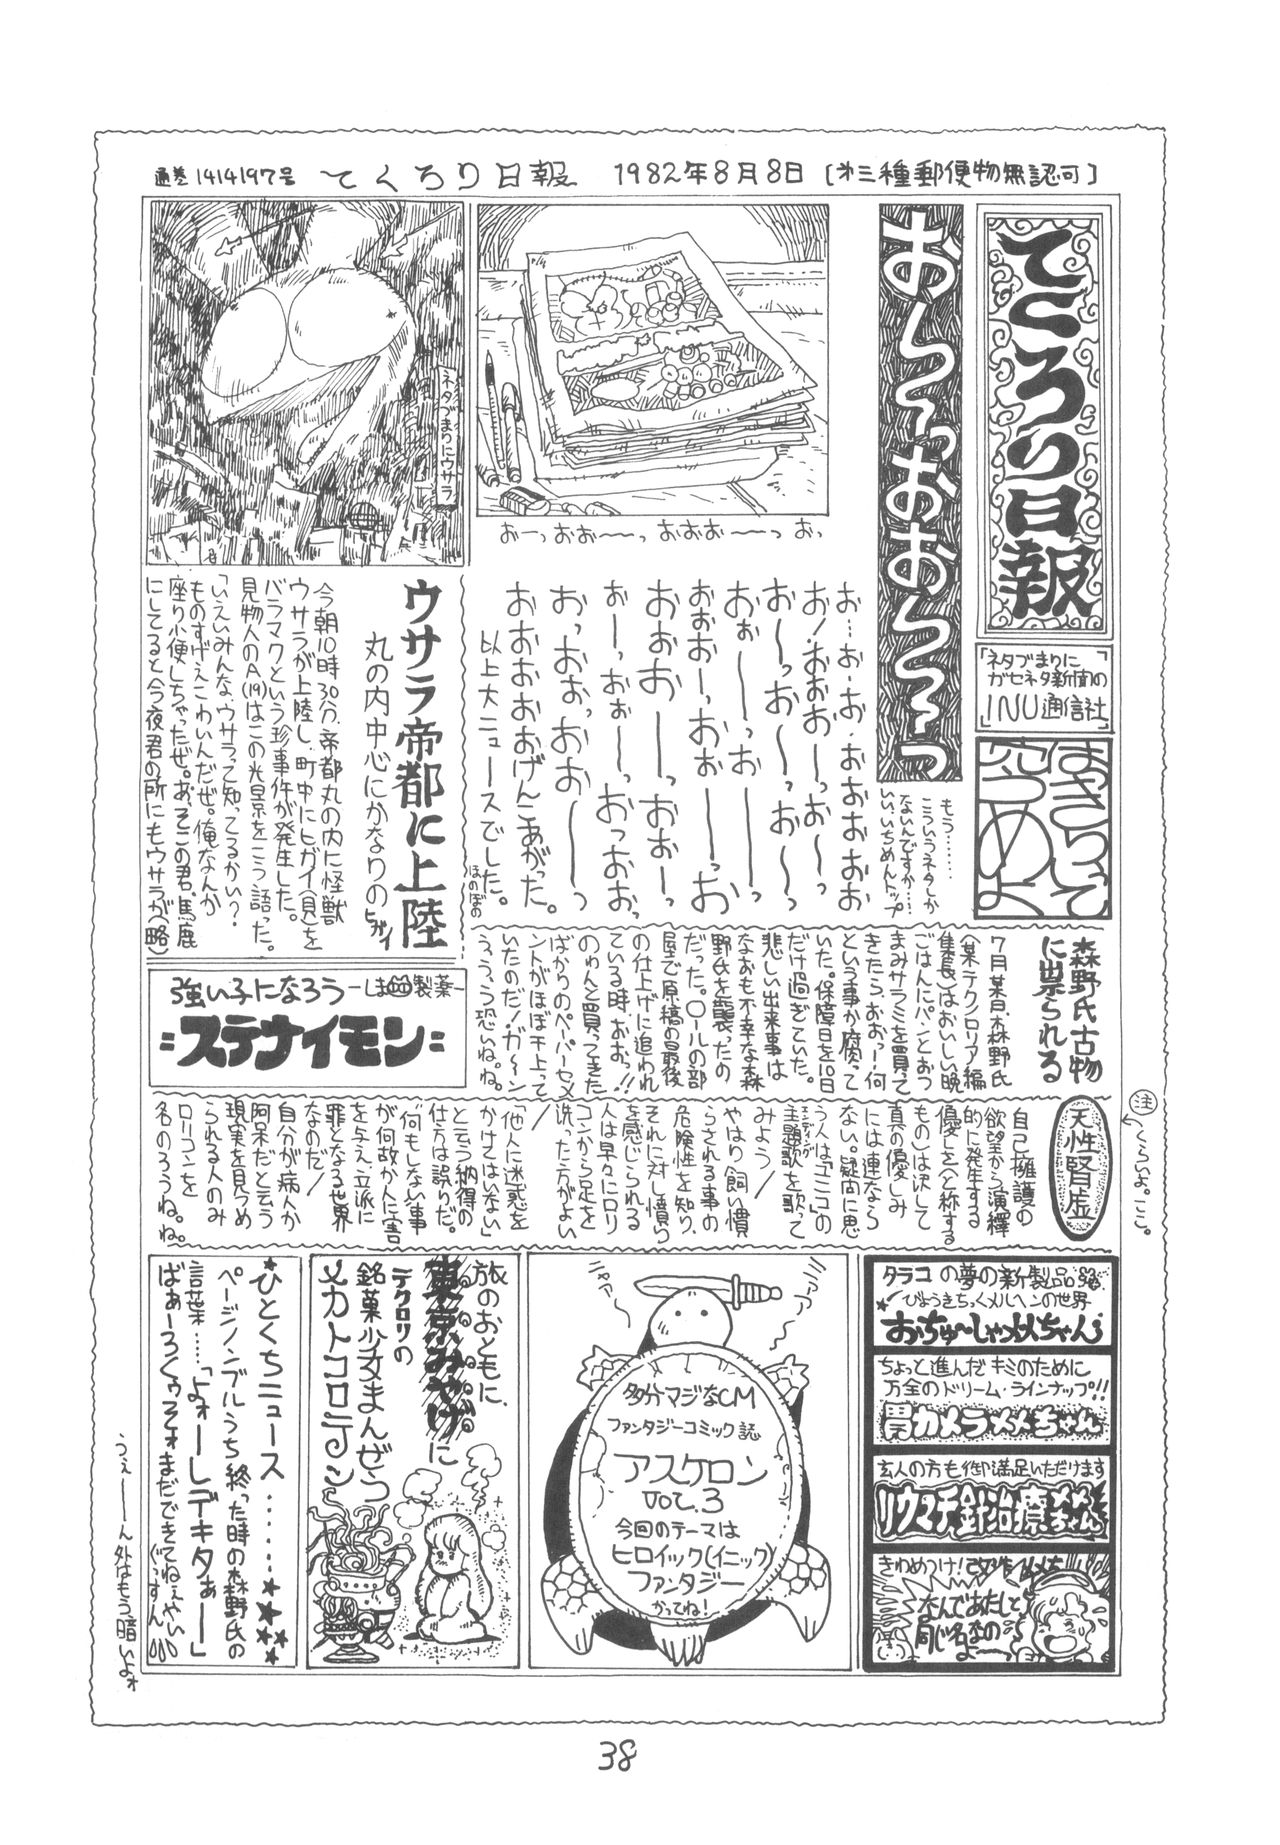 通巻1414197号 てくろり日報 1982年8月8日 [オ三種郵便物無認可]
てくろり日報
「ネタづまりに
ガセネタ新聞の
INU通信社」
お〜っおお〜っ
もう………
こういうネタしか
ないんですか……
いい、いちめんトップ
おーっおお〜っ おおお〜っ おっ
お…お-お、おおおお
お!おおお〜お〜っ
お〜っお〜っお〜っ
おぉ〜っお〜っ
おおお〜っおお〜お
おおお〜っおお〜
お〜っおぉ〜っ
おっおおっおお〜〜っ
おおおおおげんこあがった。
以上大ニュースでした。
ほのぼの
ネタづまりにウサラ
ウサラ帝都に上陸
丸の内中心にかなりのヒガイ
今朝10時30分、帝都丸の内に怪獣
ウサラが上陸し、町中にヒガイ(貝)を
バラマクという珍事件が発生した。
見物人のA(19)はこの光景をこう語った。
「いえいみんな、ウサラって知ってるかい?
ものすげえこわいんだぜ。俺なんか
座り小便しちゃったぜ。あ、そこの君、馬鹿
にしてると今夜君の所にもウサラが(略)
強い子になろう -しま製薬-
=ステナイモン=
森野氏古物
に祟られる
7月某日、森野氏
(某テクロリア編
集長)はおいしい晩
ごはんにパンとおつ
まみサラミを買って
きたら、おおー!何
という事か腐って
いた。保障日を10日
だけ過ぎていた。
悲しい出来事は
なおも不幸な森
野氏を襲ったの
だった。ロールの部
屋で原稿の最後
の仕上げに追われ
ている時、おおっ!!
のゅんと買ってきた
ばかりのペーパーセメ
ントがほぼ干上って
いたのだ!ガ〜ン
ううう、う恐いね。ね。
天性腎虚
注
くらいよ。ここ。
自己擁護の
欲望から演繹
的に発生する
優しさ(と称する
もの)は決して
真の優しみ
には連なら
ない。疑問に思
う人は「ミミコ」の
エンディング
主題歌を歌って
みよう/
やはり、飼い慣
らされる事の
危険性を知り、
それに対し憤り
を感じられる
人は早々にロリ
コンから足を
洗った方がよい
/
「他人に迷惑を
かけてはいない」
と云う納得の
仕方は誤りだ。
何もしない事
が何故か人に害
を与え、立派に
罪となる世界
なのだ/
自分が病人か
阿呆だと云う
現実を見つめ
られる人のみ
ロリコンを
名のろうね。ね。
タラコの夢の新製品
びょうきちっくメルヘンの世界
おちゅ〜しゃメメちゃん
ちょっと進んだキミのために
万全のドリーム・ラインナップ!!
カメラメメちゃん
玄人の方も御満足いただけます
リウマチ針治療
きわめつけ!改作
なんであたしと
同じ名なの
よ〜〜
ニャァ〜
ニャァァ〜
多分マジなCM
ファンタジーコミック誌
アスケロン
Vol.3
今回のテーマは
ヒロイック(イニック)
ファンタジー
かってね!
旅のおともに、
東京みやげに
テクロリの
銘菓少女まんぜう
メカトコロテン
★ひとくちニュース……★★★★
ページノンブルうち終った時の森野氏の
言葉……「よォーしデキタぁー」
ばぁーろくぅそォまだできてねぇやい
ぐっすん
うぇ〜〜ん外はもう暗いよォ
38